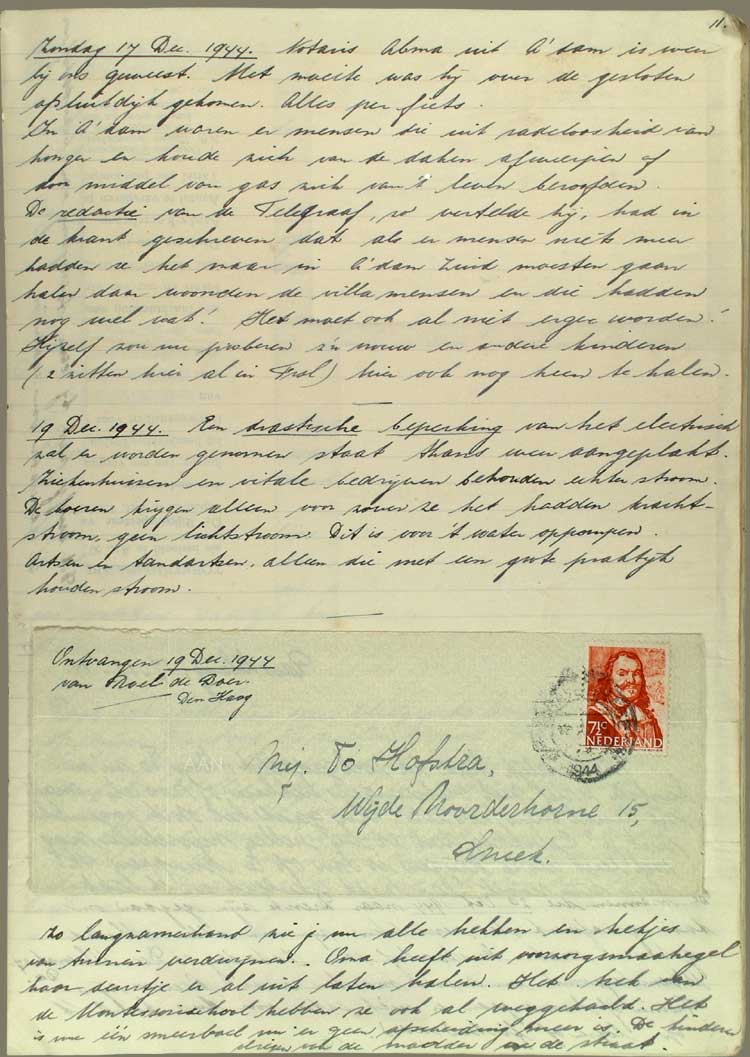 11.
Zondag 17 Dec. 1944. Notaris Abma uit A'dam is weer
bij ons geweest. Met moeite was hij over de gesloten
afsluitdijk gekomen. Alles per fiets.
In A'dam waren er mensen die uit radeloosheid van
honger en koude zich van de daken afwierpen of
door middel van gas zich van 't leven beroofden.
De redactie van de Telegraaf, zo vertelde hij, had in
de krant geschreven dat als er mensen niets meer
hadden ze het maar in A'dam Zuid moesten gaan
halen daar woonden de villa mensen en die hadden
nog wel wat! Het moet ook al niet erger worden!
Hijzelf zou nu proberen z'n vrouw en andere kinderen
(2 zitten hier al in Frsl) hier ook nog heen te halen.
19 Dec. 1944. Een drastische beperking van het electrisch
zal er worden genomen staat thans weer aangeplakt.
Ziekenhuizen en vitale bedrijven behouden echter stroom.
De boeren krijgen alleen voor zover ze het hadden kracht-
stroom, geen lichtstroom. Dit is voor 't water oppompen.
Artsen en tandartsen, alleen die met een grote praktijk
houden stroom.
Ontvangen 19 Dec. 1944
van Roel de Boer
Den Haag
7½ c
NEDERLAND
1944
Mej. To Hofstra,
Wijde Noorderhorne 15,
Sneek.
Zo langzamerhand zie je nu alle hekken en hekjes
van tuinen verdwijnen. Oma heeft uit voorzorgsmaatregel
haar deurtje er al uit laten halen. Het hek van
de Montessorischool hebben ze ook al weggehaald. Het
is nu één smeerboel nu er geen afscheiding meer is. De kinderen
van de modder de straat.